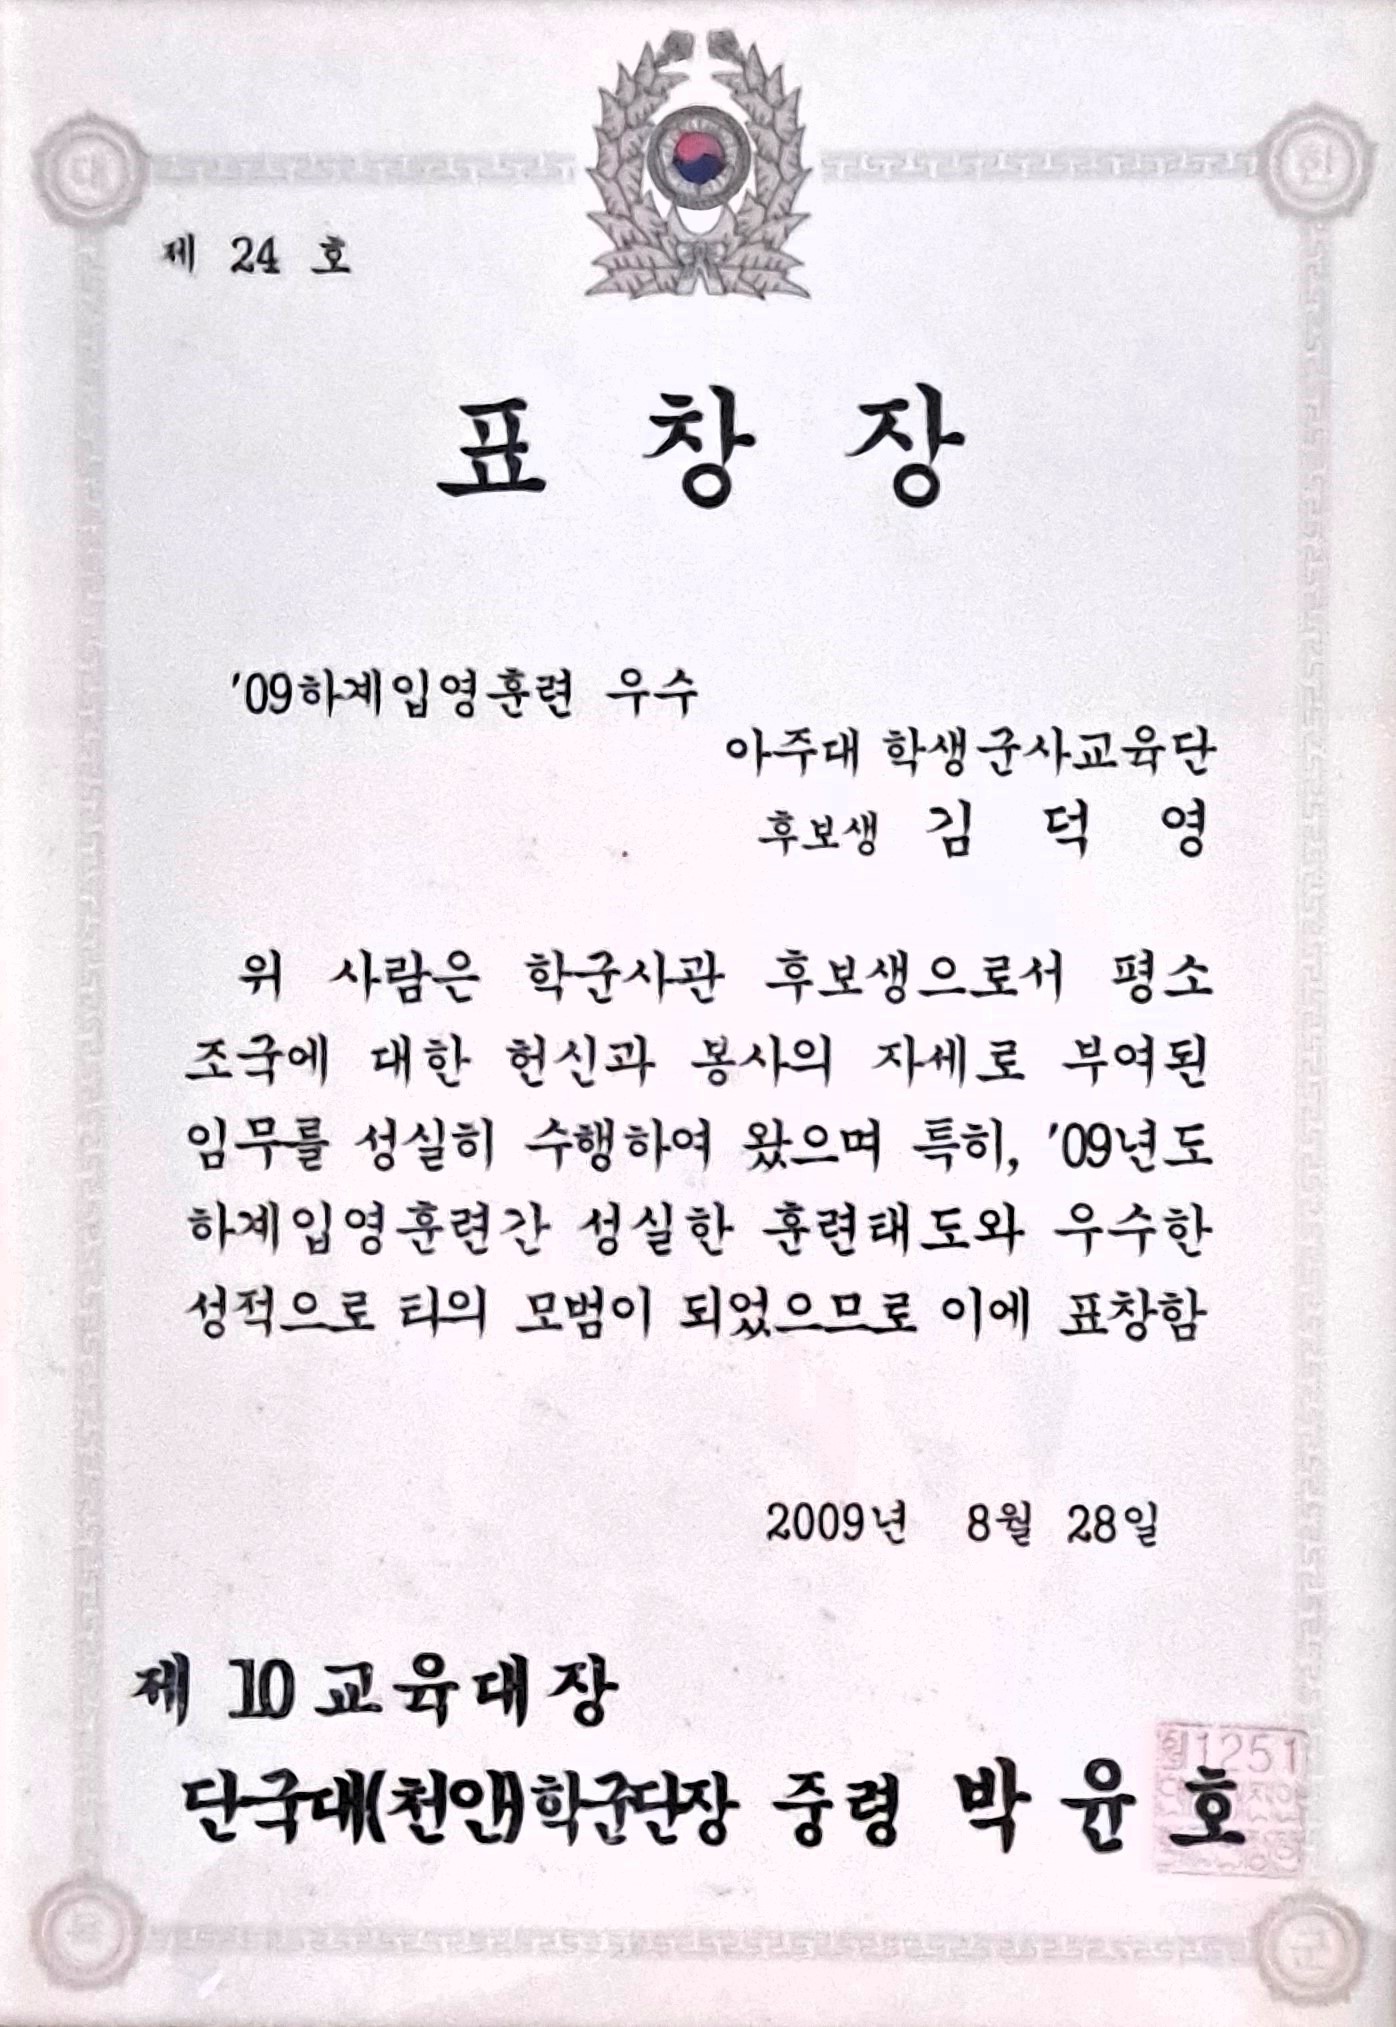 제 24 호
표 창 장
'09하계입영훈련 우수
아주대 학생군사교육단
후보생 김 덕 영
위 사람은 학군사관 후보생으로서 평소
조국에 대한 헌신과 봉사의 자세로 부여된
임무를 성실히 수행하여 왔으며 특히, '09년도
하계입영훈련간 성실한 훈련태도와 우수한
성적으로 타의 모범이 되었으므로 이에 표창함
2009년 8월 28일
제 10 교육대장
단국대(천안)학군단장 중령 박 윤 호
1251